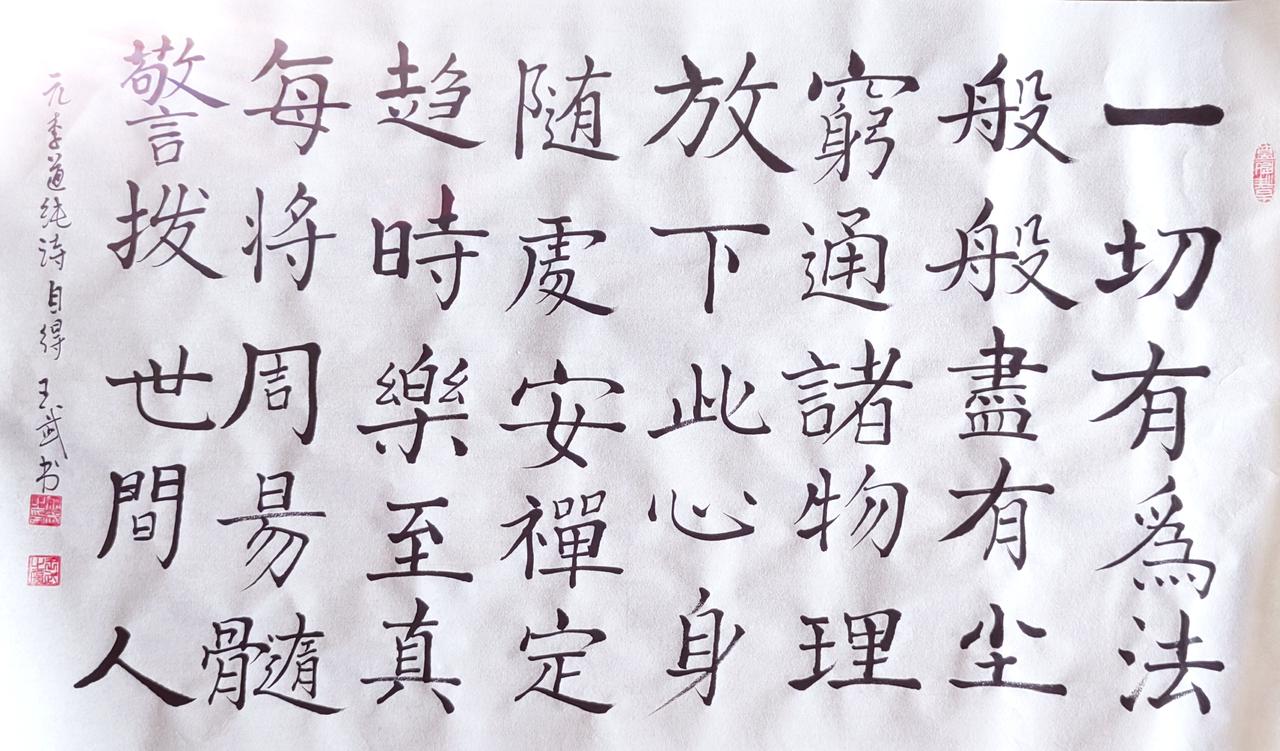 一切有為法
般般盡有尘
窮通諸物理
放下此心身
随處安禪定
趋時樂至真
每将周昜髓
警拨世間人
元李道纯诗自得 王武书